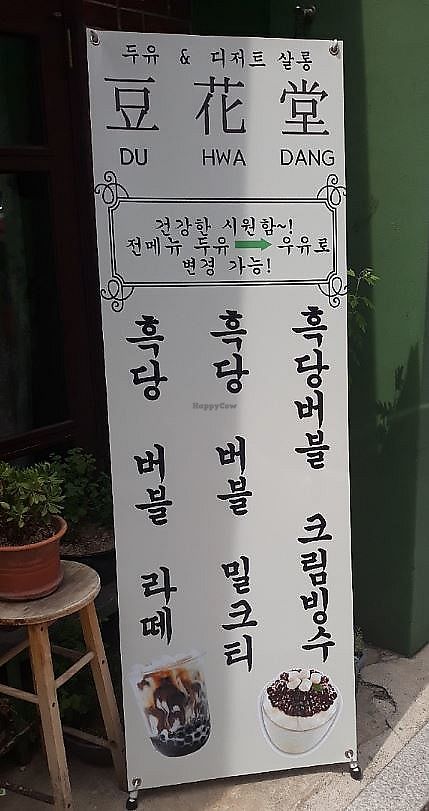 두유 & 디저트 살롱
豆花堂
DU HWA DANG
건강한 시원함~!
전메뉴 두유 → 우유로
변경 가능!
흑당버블 크림빙수
흑당 버블 밀크티
흑당 버블 라떼
HappyCow